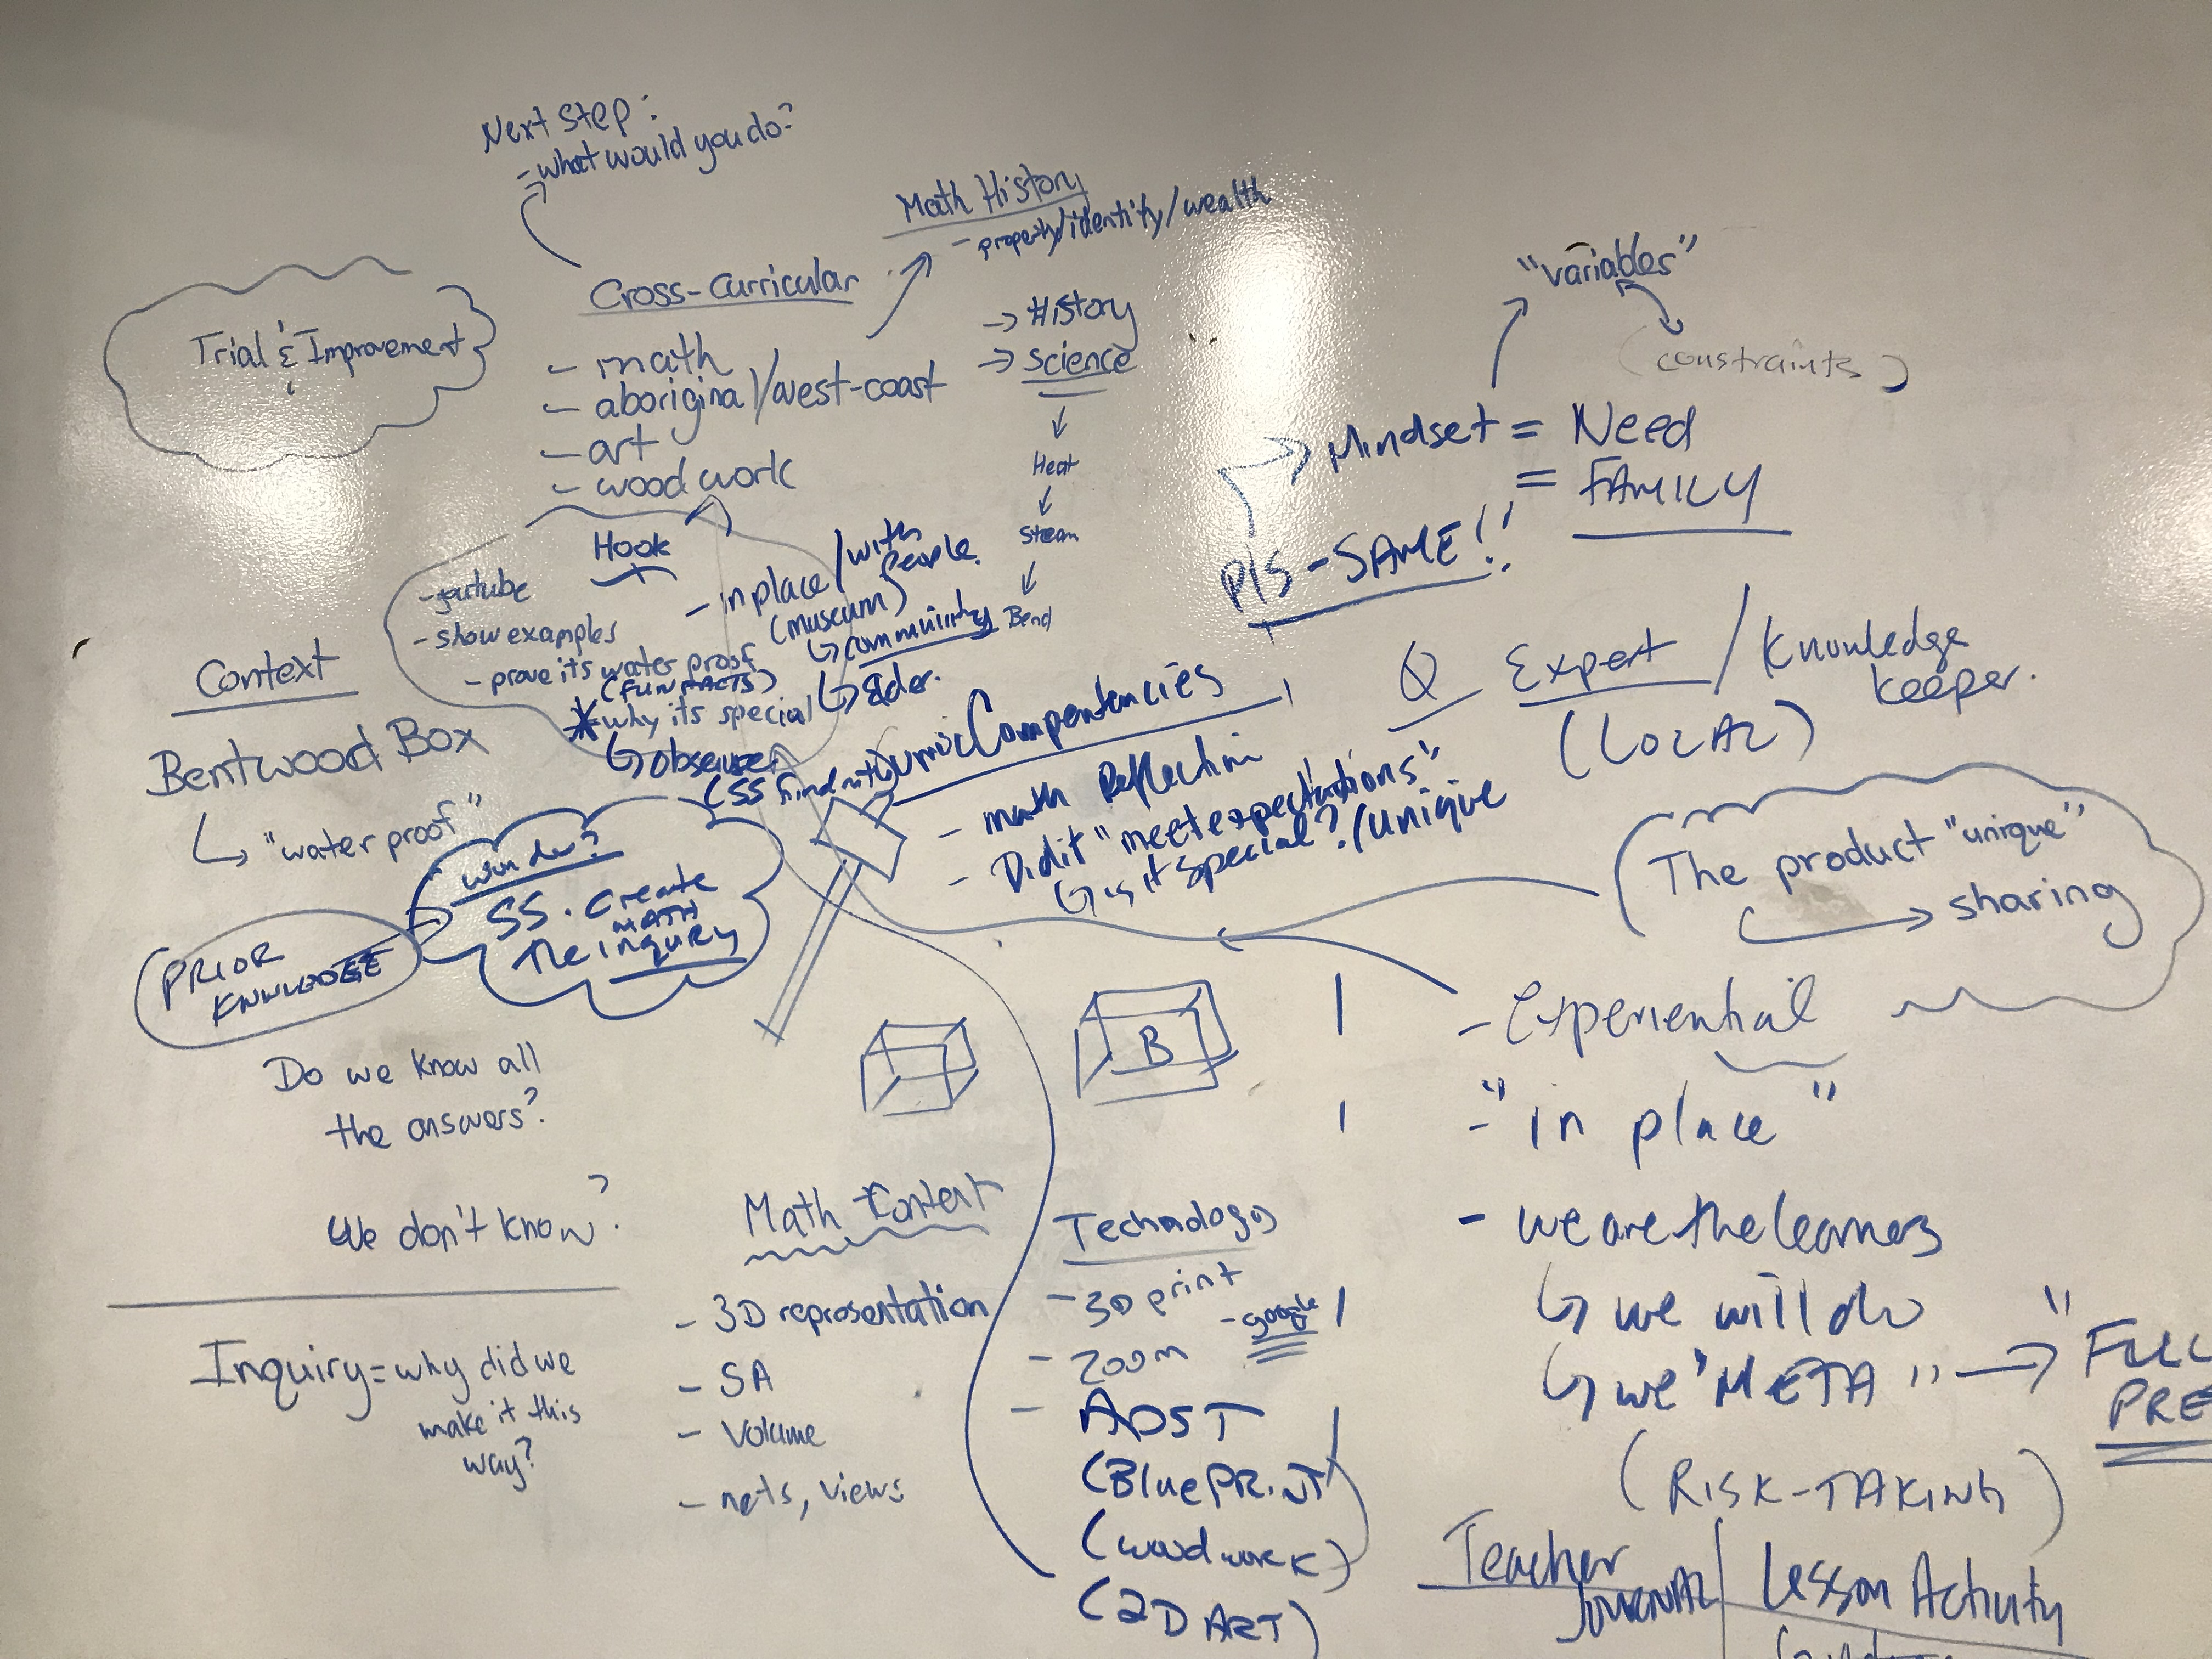 Next step:
- what would you do?
Math History
- property/identity/wealth
Cross-Curricular
- math
- aboriginal/west-coast
- art
- woodwork
→ History
→ Science
↓
Heat
↓
Steam
↓
Bend
Trial & Improvement
"variables"
(constraints)
→ Mindset = Need
= FAMILY
P/S - SAME!!
Hook
- youtube
- show examples
- prove its water proof
(FUN FACTS)
* why its special
↳ observe
(SS find math)
- in place/with people.
(museum)
↳ community
↳ Elder.
Context
Bentwood Box
↳ "water proof"
Compentencies
- math Reflection
- Did it "meet expectations"
↳ is it special?/unique
Q Expert / Knowledge keeper.
(LOCAL)
The product "unique"
→ sharing
PRIOR
KNWLEDGE
wonder?
SS. Create
MATH
The inquiry
Do we know all
the answers?
We don't know?
Inquiry = why did we
make it this
way?
B
Math Content
- 3D representation
- SA
- Volume
- nets, views
Technology
- 3D print
- google
- zoom
- ADST
(BluePRiNT)
(woodwork)
(2D ART)
- Experiential
- "in place"
- we are the learners
↳ we will do
↳ we "META" → "FULL
PRE
(RISK-TAKING)
Teacher
JOURNAL
Lesson Activity